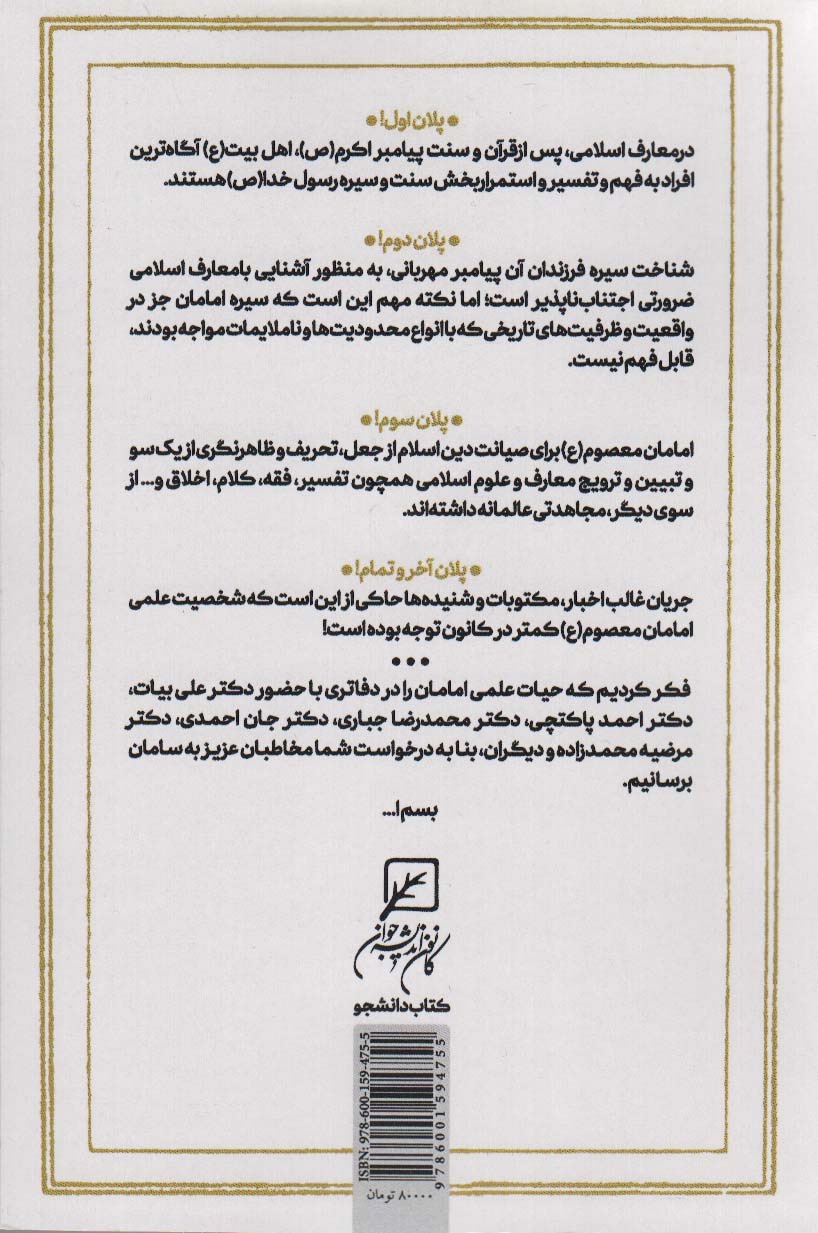 ● پلان اول! ●
در معارف اسلامی، پس از قرآن و سنت پیامبر اکرم(ص)، اهل بیت(ع) آگاه‌ترین
افراد به فهم و تفسیر و استمراربخش سنت و سیره رسول خدا(ص) هستند.
● پلان دوم! ●
شناخت سیره فرزندان آن پیامبر مهربانی، به منظور آشنایی با معارف اسلامی
ضرورتی اجتناب‌ناپذیر است؛ اما نکته مهم این است که سیره امامان جز در
واقعیت و ظرفیت‌های تاریخی که با انواع محدودیت‌ها و ناملایمات مواجه بودند،
قابل فهم نیست.
● پلان سوم! ●
امامان معصوم(ع) برای صیانت دین اسلام از جعل، تحریف و ظاهرنگری از یک سو
و تبیین و ترویج معارف و علوم اسلامی همچون تفسیر، فقه، کلام، اخلاق و... از
سوی دیگر، مجاهدتی عالمانه داشته‌اند.
● پلان آخر و تمام! ●
جریان غالب اخبار، مکتوبات و شنیده‌ها حاکی از این است که شخصیت علمی
امامان معصوم(ع) کمتر در کانون توجه بوده است!
● ● ●
فکر کردیم که حیات علمی امامان را در دفاتری با حضور دکتر علی بیات،
دکتر احمد پاکتچی، دکتر محمدرضا جباری، دکتر جان احمدی، دکتر
مرضیه محمدزاده و دیگران، بنا به درخواست شما مخاطبان عزیز به سامان
برسانیم.
بسم ا...
کانون اندیشه جوان
کتاب دانشجو
ISBN: 978-600-159-475-5
9786001594755
۸۰۰۰۰ تومان